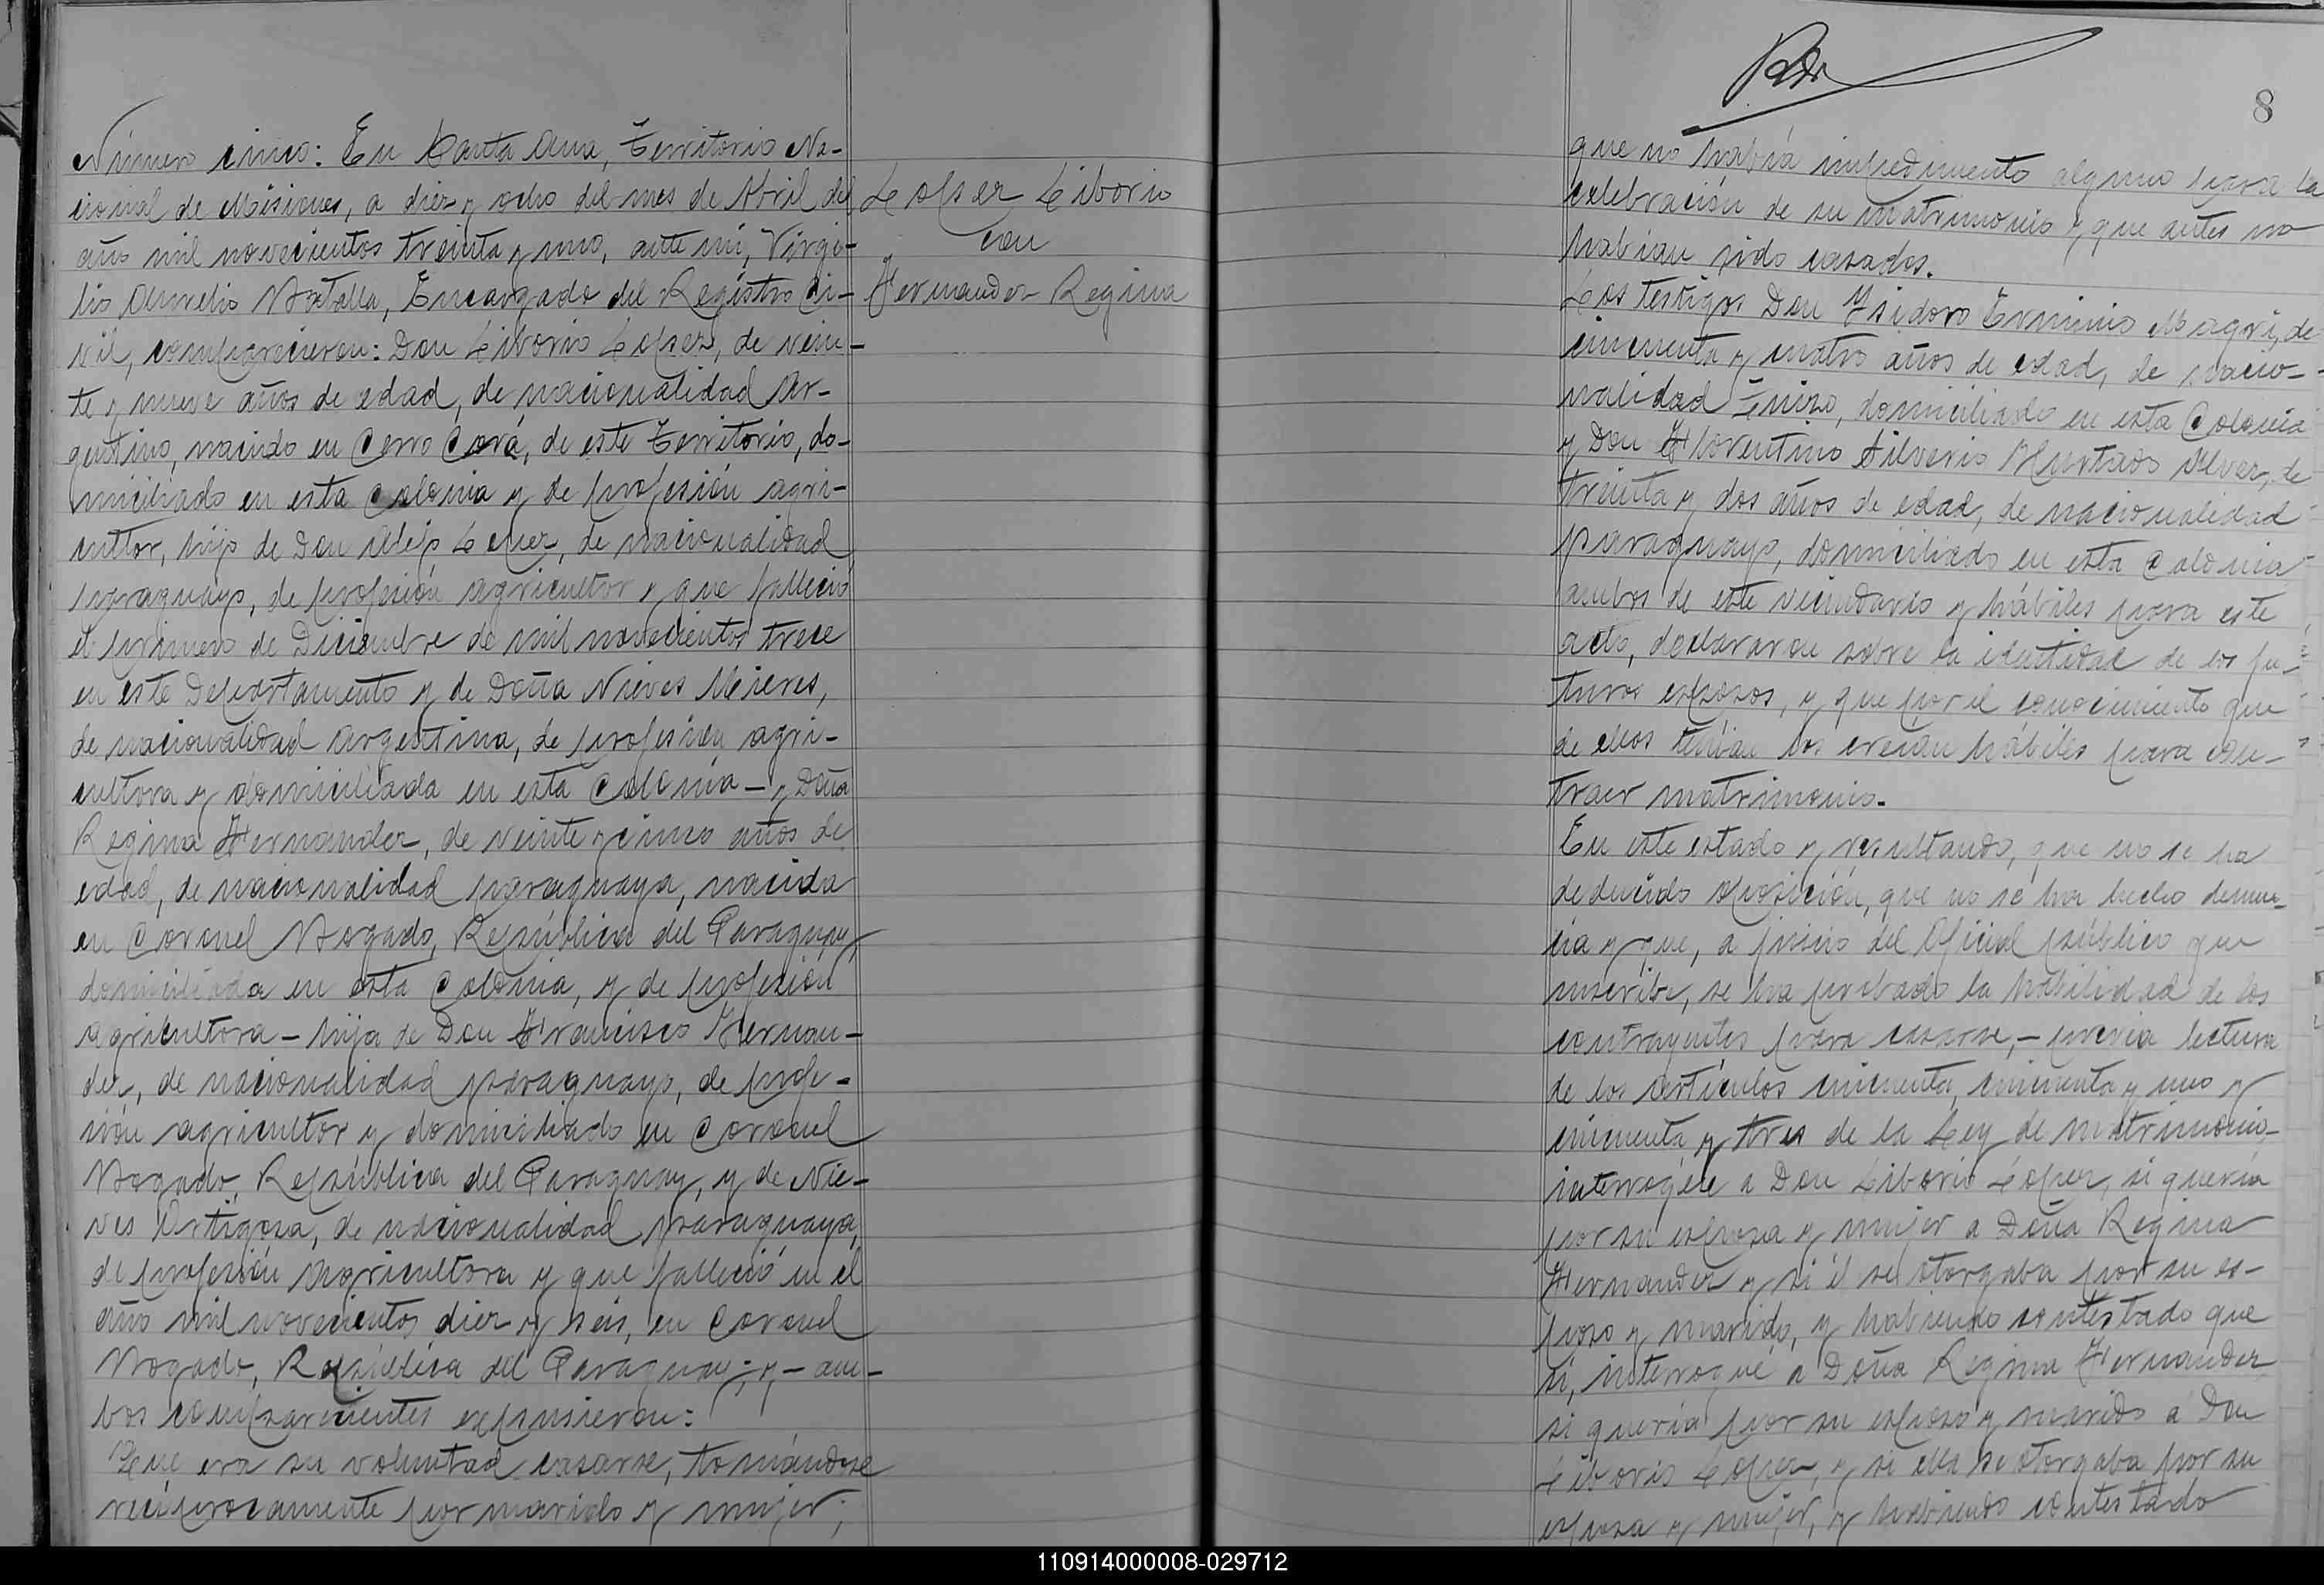 Número cinco: En Santa Ana, Territorio Na-
cional de Misiones, a diez y ocho del mes de Abril del
año mil novecientos treinta y uno, ante mí, Virgi-
lio Aurelio Motalla, Encargado del Registro Ci-
vil, comparecieron: Don Liborio López, de vein-
te y nueve años de edad, de nacionalidad Ar-
gentino, nacido en Cerro Corá, de este Territorio, do-
miciliado en esta Colonia y de profesión agri-
cultor, hijo de Don Alejo López, de nacionalidad
paraguayo, de profesión agricultor y que falleció
el primero de Diciembre de mil novecientos trece
en este Departamento y de Doña Nieves Mieres,
de nacionalidad Argentina, de profesión agri-
cultora y domiciliada en esta Colonia - y Doña
Regina Hernandez, de veinte y cinco años de
edad, de nacionalidad paraguaya, nacida
en Coronel Bogado, República del Paraguay,
domiciliada en esta Colonia, y de profesión
agricultora - hija de Don Francisco Hernan-
dez, de nacionalidad paraguayo, de profe-
sión agricultor y domiciliado en Coronel
Bogado, República del Paraguay, y de Nie-
ves Ortigoza, de nacionalidad paraguaya,
de profesión agricultora y que falleció en el
año mil novecientos diez y seis, en Coronel
Bogado, República del Paraguay; y - am-
bos comparecientes expusieron:
Que era su voluntad casarse, tomándose
recíprocamente por marido y mujer;
Lopez Liborio
con
Hernandez Regina
8
que no había impedimento alguno para la
celebración de su matrimonio y que antes no
habian sido casados.
Los testigos Don Isidoro Erminio Magri, de
cincuenta y cuatro años de edad, de nacio-
nalidad Suizo, domiciliado en esta Colonia
y Don Florentino Silverio Hurtado Alvez, de
treinta y dos años de edad, de nacionalidad
paraguayo, domiciliado en esta Colonia
ambos de este vecindario y hábiles para este
acto, declararon sobre la identidad de los fu-
turos esposos, y que por el conocimiento que
de ellos tenian los creían hábiles para con-
traer matrimonio.
En este estado y resultando, que no se ha
deducido oposición, que no se ha hecho denun-
cia y que, a juicio del Oficial público que
suscribe, se ha probado la habilidad de los
contrayentes para casarse, - previa lectura
de los artículos cincuenta, cincuenta y uno y
cincuenta y tres de la Ley de matrimonio-
interroguéle a Don Liborio López, si quería
por su esposa y mujer a Doña Regina
Hernandez y si él se otorgaba por su es-
poso y marido, y habiendo contestado que
sí, interrogué a Doña Regina Hernandez
si quería por su esposo y marido a Don
Liborio López, y si ella se otorgaba por su
esposa y mujer, y habiendo contestado
110914000008-029712